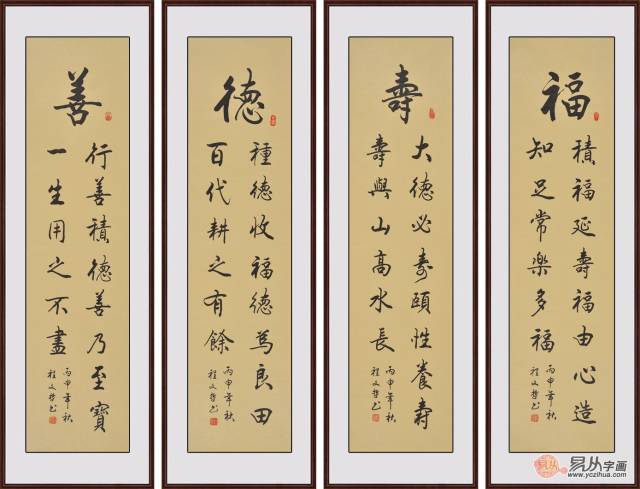 福
積福延壽福由心造
知足常樂多福
丙申年秋
程文哲书
壽
大德必寿頤性養壽
壽與山高水長
丙申年秋
程文哲书
德
種德收福德為良田
百代耕之有餘
丙申年秋
程文哲书
善
行善積德善乃至寶
一生用之不盡
丙申年秋
程文哲书
易从字画
www.yczihua.com